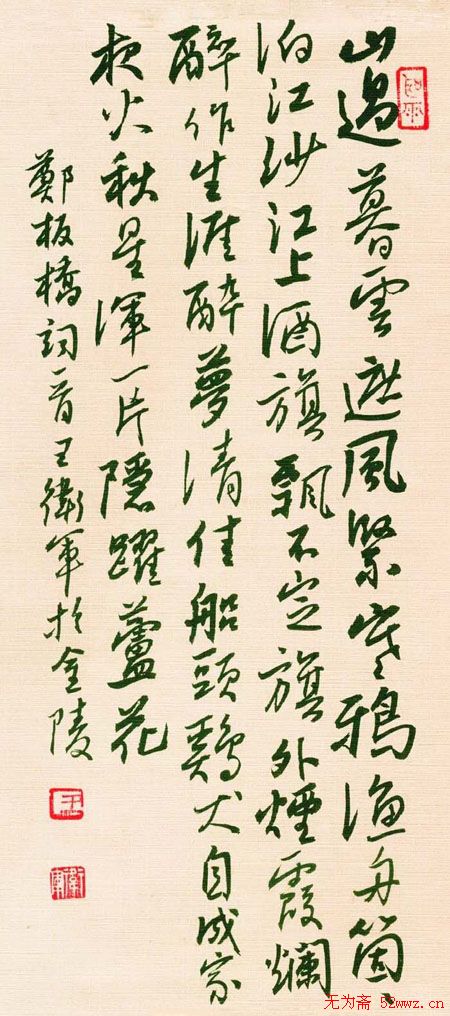 山過暮雲遮風緊寒鴉漁舟箇、
泊江沙江上酒旗飄不定旗外煙霞爛
醉作生涯醉夢清佳船頭鷄犬自成家
夜火秋星渾一片隱躍蘆花
鄭板橋詞一首王衛軍於金陵
王
衛軍
无为斋 52wwz.cn